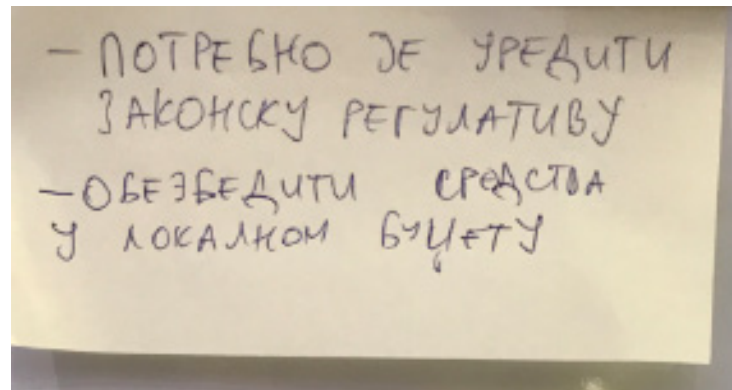 - ПОТРЕБНО ЈЕ УРЕДИТИ
ЗАКОНСКУ РЕГУЛАТИВУ
- ОБЕЗБЕДИТИ СРЕДСТВА
У ЛОКАЛНОМ БУЏЕТУ